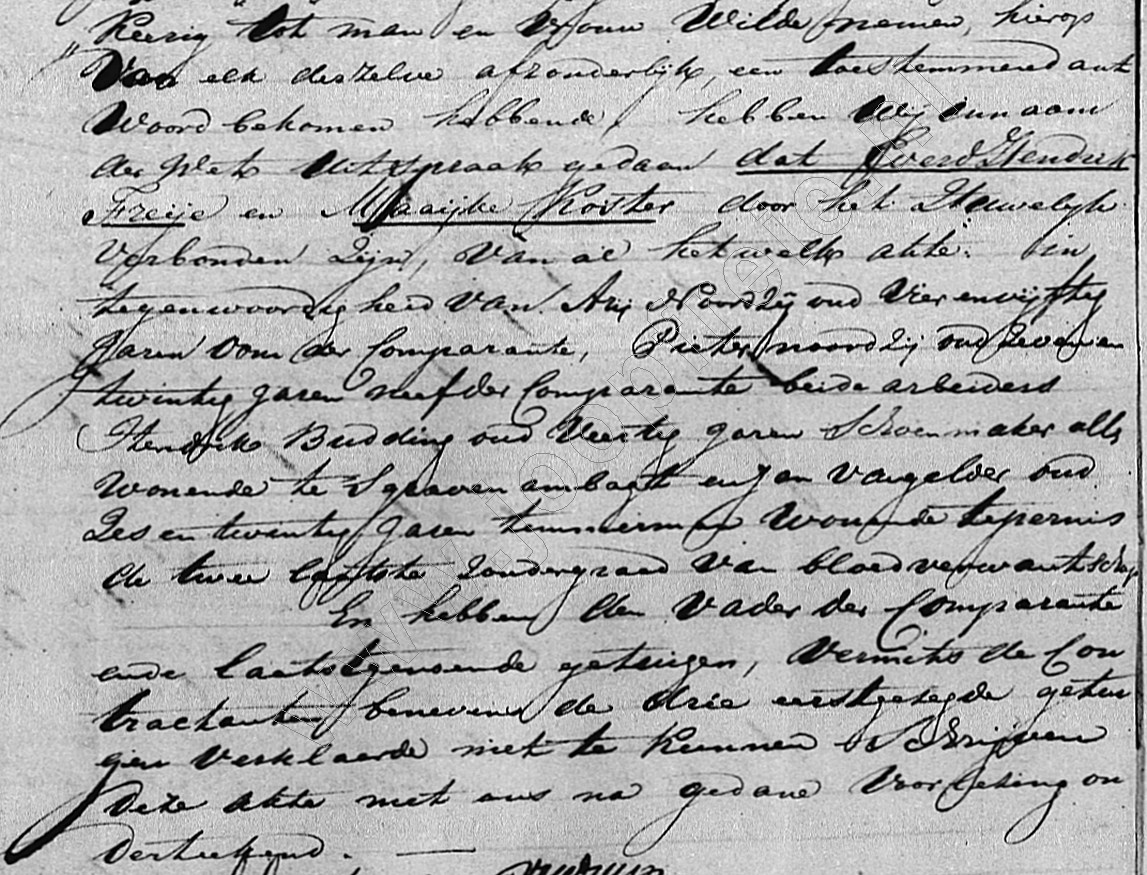 keerig tot man en vrouw Wilde nemen, hierop
Van elk deszelve afzonderlijk, een toestemmend ant
Woord bekomen hebbende, hebben Wij in naam
der Wet uitspraak gedaan dat Everd Hendrik
Freije en Maaijke Koster door het Huwelyk
Verbonden Zijn, Van al het welk akte in
tegenwoordigheid Van Arij Noordzij oud Vier en vijftig
Jaren oom der Comparante, Pieter noordzij oud Zeven en
twintig jaren neef der Comparante beide arbeiders
Hendrik Budding oud Veertig jaren Schoenmaker alle
Wonende te S graven ambagt en Jan Van gelder oud
Zes en twintig Jaren temmerman Wonende te pernis
de twee laatste Zonder graad Van bloedverwantschap
En hebben den Vader der Comparante
en de laatstgenoemde getuigen, Vermits de Con
tractanten benevens de drie eerstgezegde getui
gen Verklaarde niet te kunnen Schrijven
Deze akte met ons na gedane Voorlezing on
dertekend.